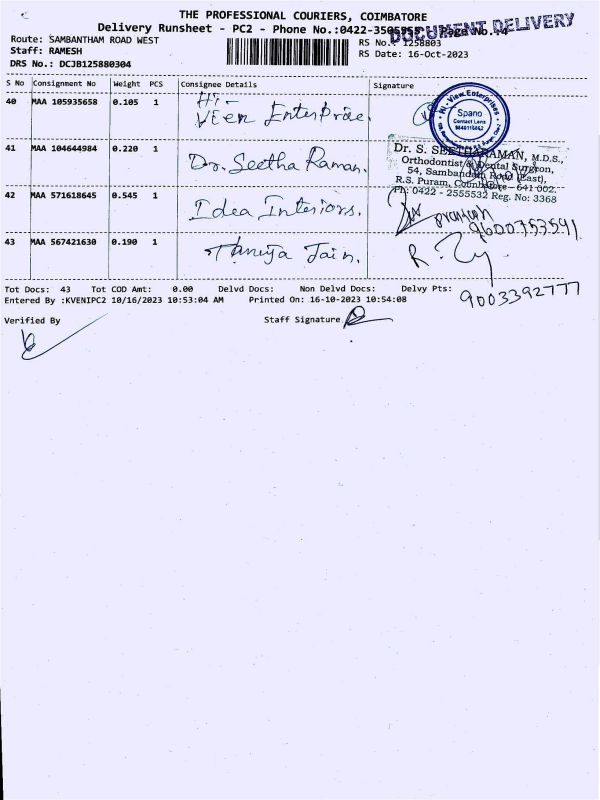 THE PROFESSIONAL COURIERS, COIMBATORE
DOCUMENT DELIVERY
Delivery Runsheet - PC2 - Phone No.:0422-3505955 Page No.:4
Route: SAMBANTHAM ROAD WEST
RS No.: 1258803
Staff: RAMESH
RS Date: 16-Oct-2023
DRS No.: DCJB125880304
S No Consignment No Weight PCS Consignee Details Signature
40 MAA 105935658 0.105 1 Hi-
View Enterprise.
Hi - View Enterprises
Spano
Contact Lens
41 MAA 104644984 0.220 1 Dr. Seetha Raman.
Dr. S. SEETHARAMAN, M.D.S.,
Orthodontist & Dental Surgeon,
54, Sambandam Road (East),
R.S. Puram, Coimbatore - 641 002.
Ph: 0422 - 2555532 Reg. No: 3368
42 MAA 571618645 0.545 1 Idea Interiors.
9600753591
43 MAA 567421630 0.190 1 Taniya Jain.
9003392777
Tot Docs: 43 Tot COD Amt: 0.00 Delvd Docs: Non Delvd Docs: Delvy Pts:
Entered By :KVENIPC2 10/16/2023 10:53:04 AM Printed On: 16-10-2023 10:54:08
Verified By Staff Signature